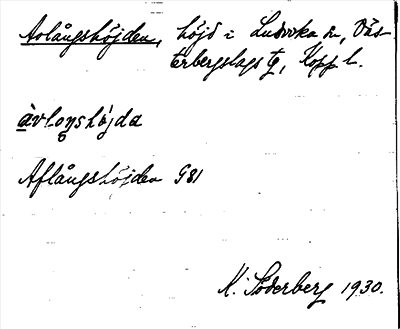 Avlångshöjden, höjd i Ludvika sn, Väs-
terbergslags tg, Kopp. l.
àvloŋshö̀jda
Aflångshöjden G81
K. Söderberg 1930.